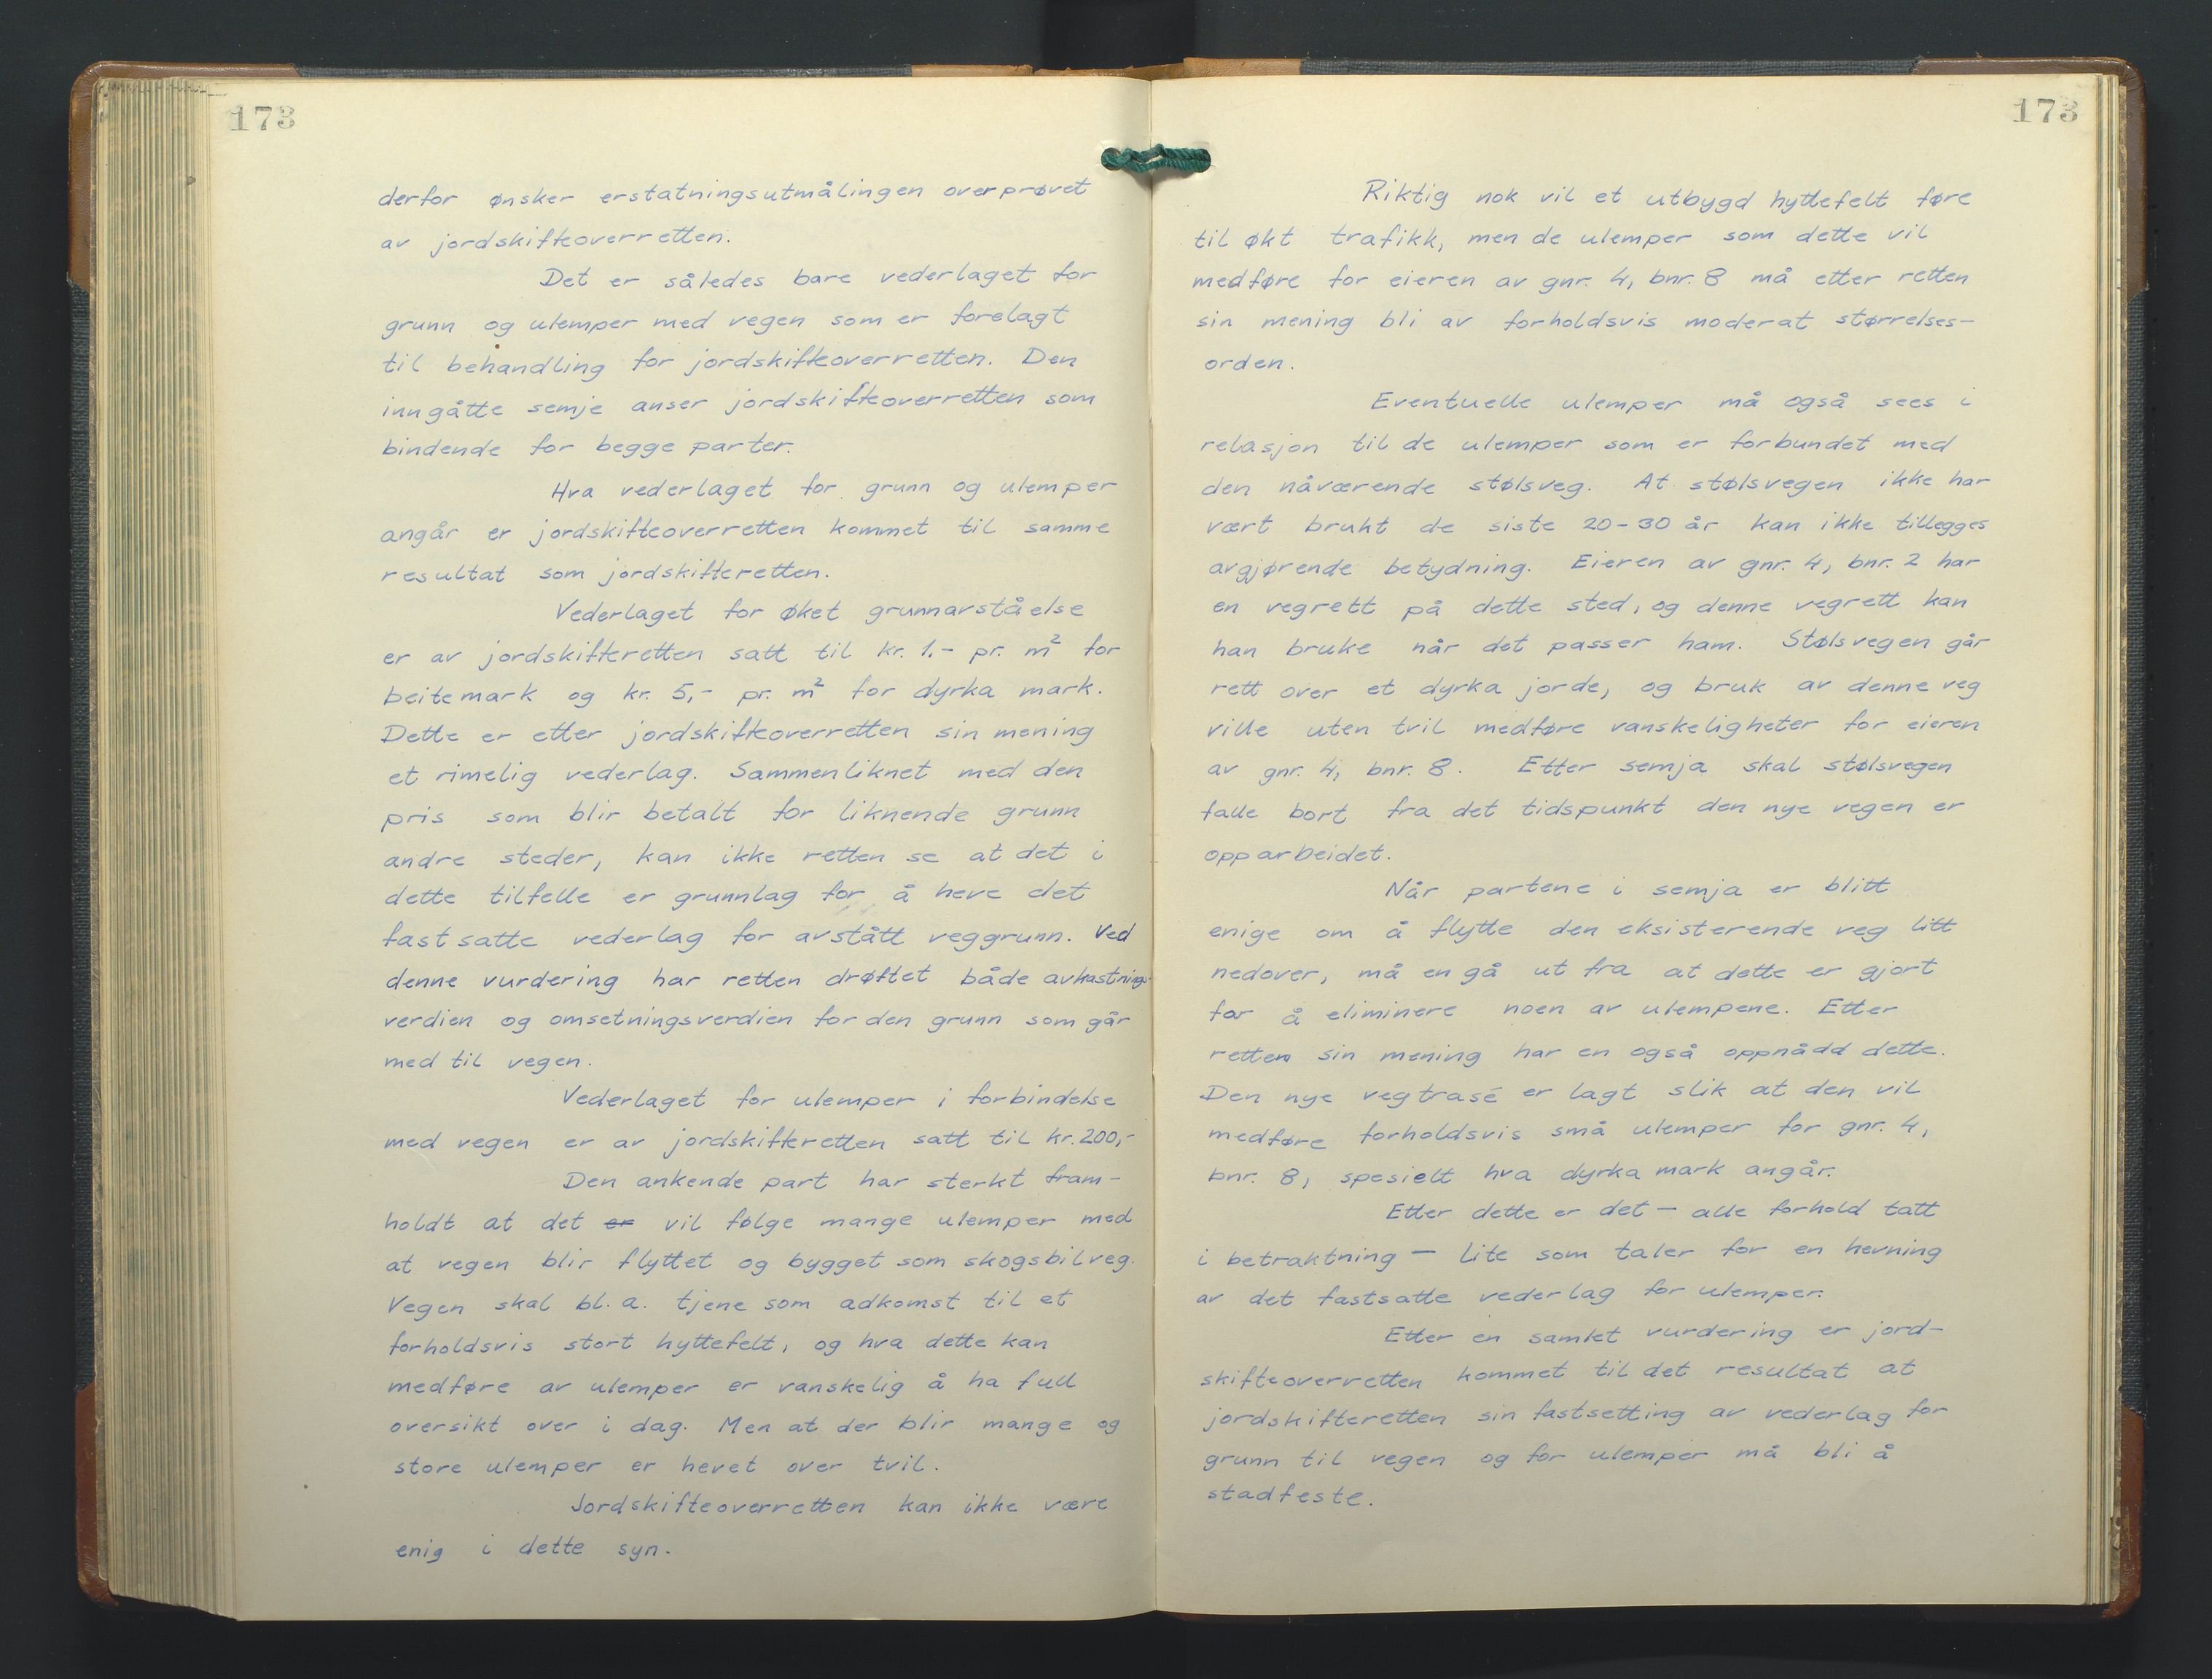 173
derfor ønsker erstatningsutmålingen overprøvet
av jordskifteoverretten.
Det er således bare vederlaget for
grunn og ulemper med vegen som er forelagt
til behandling for jordskifteoverretten. Den
inngåtte semje anser jordskifteoverretten som
bindende for begge parter.
Hva vederlaget for grunn og ulemper
angår er jordskifteoverretten kommet til samme
resultat som jordskifteretten.
Vederlaget for øket grunnavståelse
er av jordskifteretten satt til kr. 1.- pr. m² for
beitemark og kr. 5,- pr. m² for dyrka mark.
Dette er etter jordskifteoverretten sin mening
et rimelig vederlag. Sammenliknet med den
pris som blir betalt for liknende grunn
andre steder, kan ikke retten se at det i
dette tilfelle er grunnlag for å heve det
fastsatte vederlag for avstått veggrunn. Ved
denne vurdering har retten drøftet både avkastnings-
verdien og omsetningsverdien for den grunn som går
med til vegen.
Vederlaget for ulemper i forbindelse
med vegen er av jordskifteretten satt til kr. 200,-
Den ankende part har sterkt fram-
holdt at det er vil følge mange ulemper med
at vegen blir flyttet og bygget som skogsbilveg.
Vegen skal bl. a. tjene som adkomst til et
forholdsvis stort hyttefelt, og hva dette kan
medføre av ulemper er vanskelig å ha full
oversikt over i dag. Men at der blir mange og
store ulemper er hevet over tvil.
Jordskifteoverretten kan ikke være
enig i dette syn.
173
Riktig nok vil et utbygd hyttefelt føre
til økt trafikk, men de ulemper som dette vil
medføre for eieren av gnr. 4, bnr. 8 må etter retten
sin mening bli av forholdsvis moderat størrelses-
orden.
Eventuelle ulemper må også sees i
relasjon til de ulemper som er forbundet med
den nåværende stølsveg. At stølsvegen ikke har
vært brukt de siste 20-30 år kan ikke tillegges
avgjørende betydning. Eieren av gnr. 4, bnr. 2 har
en vegrett på dette sted, og denne vegrett kan
han bruke når det passer ham. Stølsvegen går
rett over et dyrka jorde, og bruk av denne veg
ville uten tvil medføre vanskeligheter for eieren
av gnr. 4, bnr. 8. Etter semja skal stølsvegen
falle bort fra det tidspunkt den nye vegen er
opparbeidet.
Når partene i semja er blitt
enige om å flytte den eksisterende veg litt
nedover, må en gå ut fra at dette er gjort
for å eliminere noen av ulempene. Etter
retten sin mening har en også oppnådd dette.
Den nye vegtrasé er lagt slik at den vil
medføre forholdsvis små ulemper for gnr. 4,
bnr. 8, spesielt hva dyrka mark angår.
Etter dette er det - alle forhold tatt
i betraktning - lite som taler for en hevning
av det fastsatte vederlag for ulemper.
Etter en samlet vurdering er jord-
skifteoverretten kommet til det resultat at
jordskifteretten sin fastsetting av vederlag for
grunn til vegen og for ulemper må bli å
stadfeste.